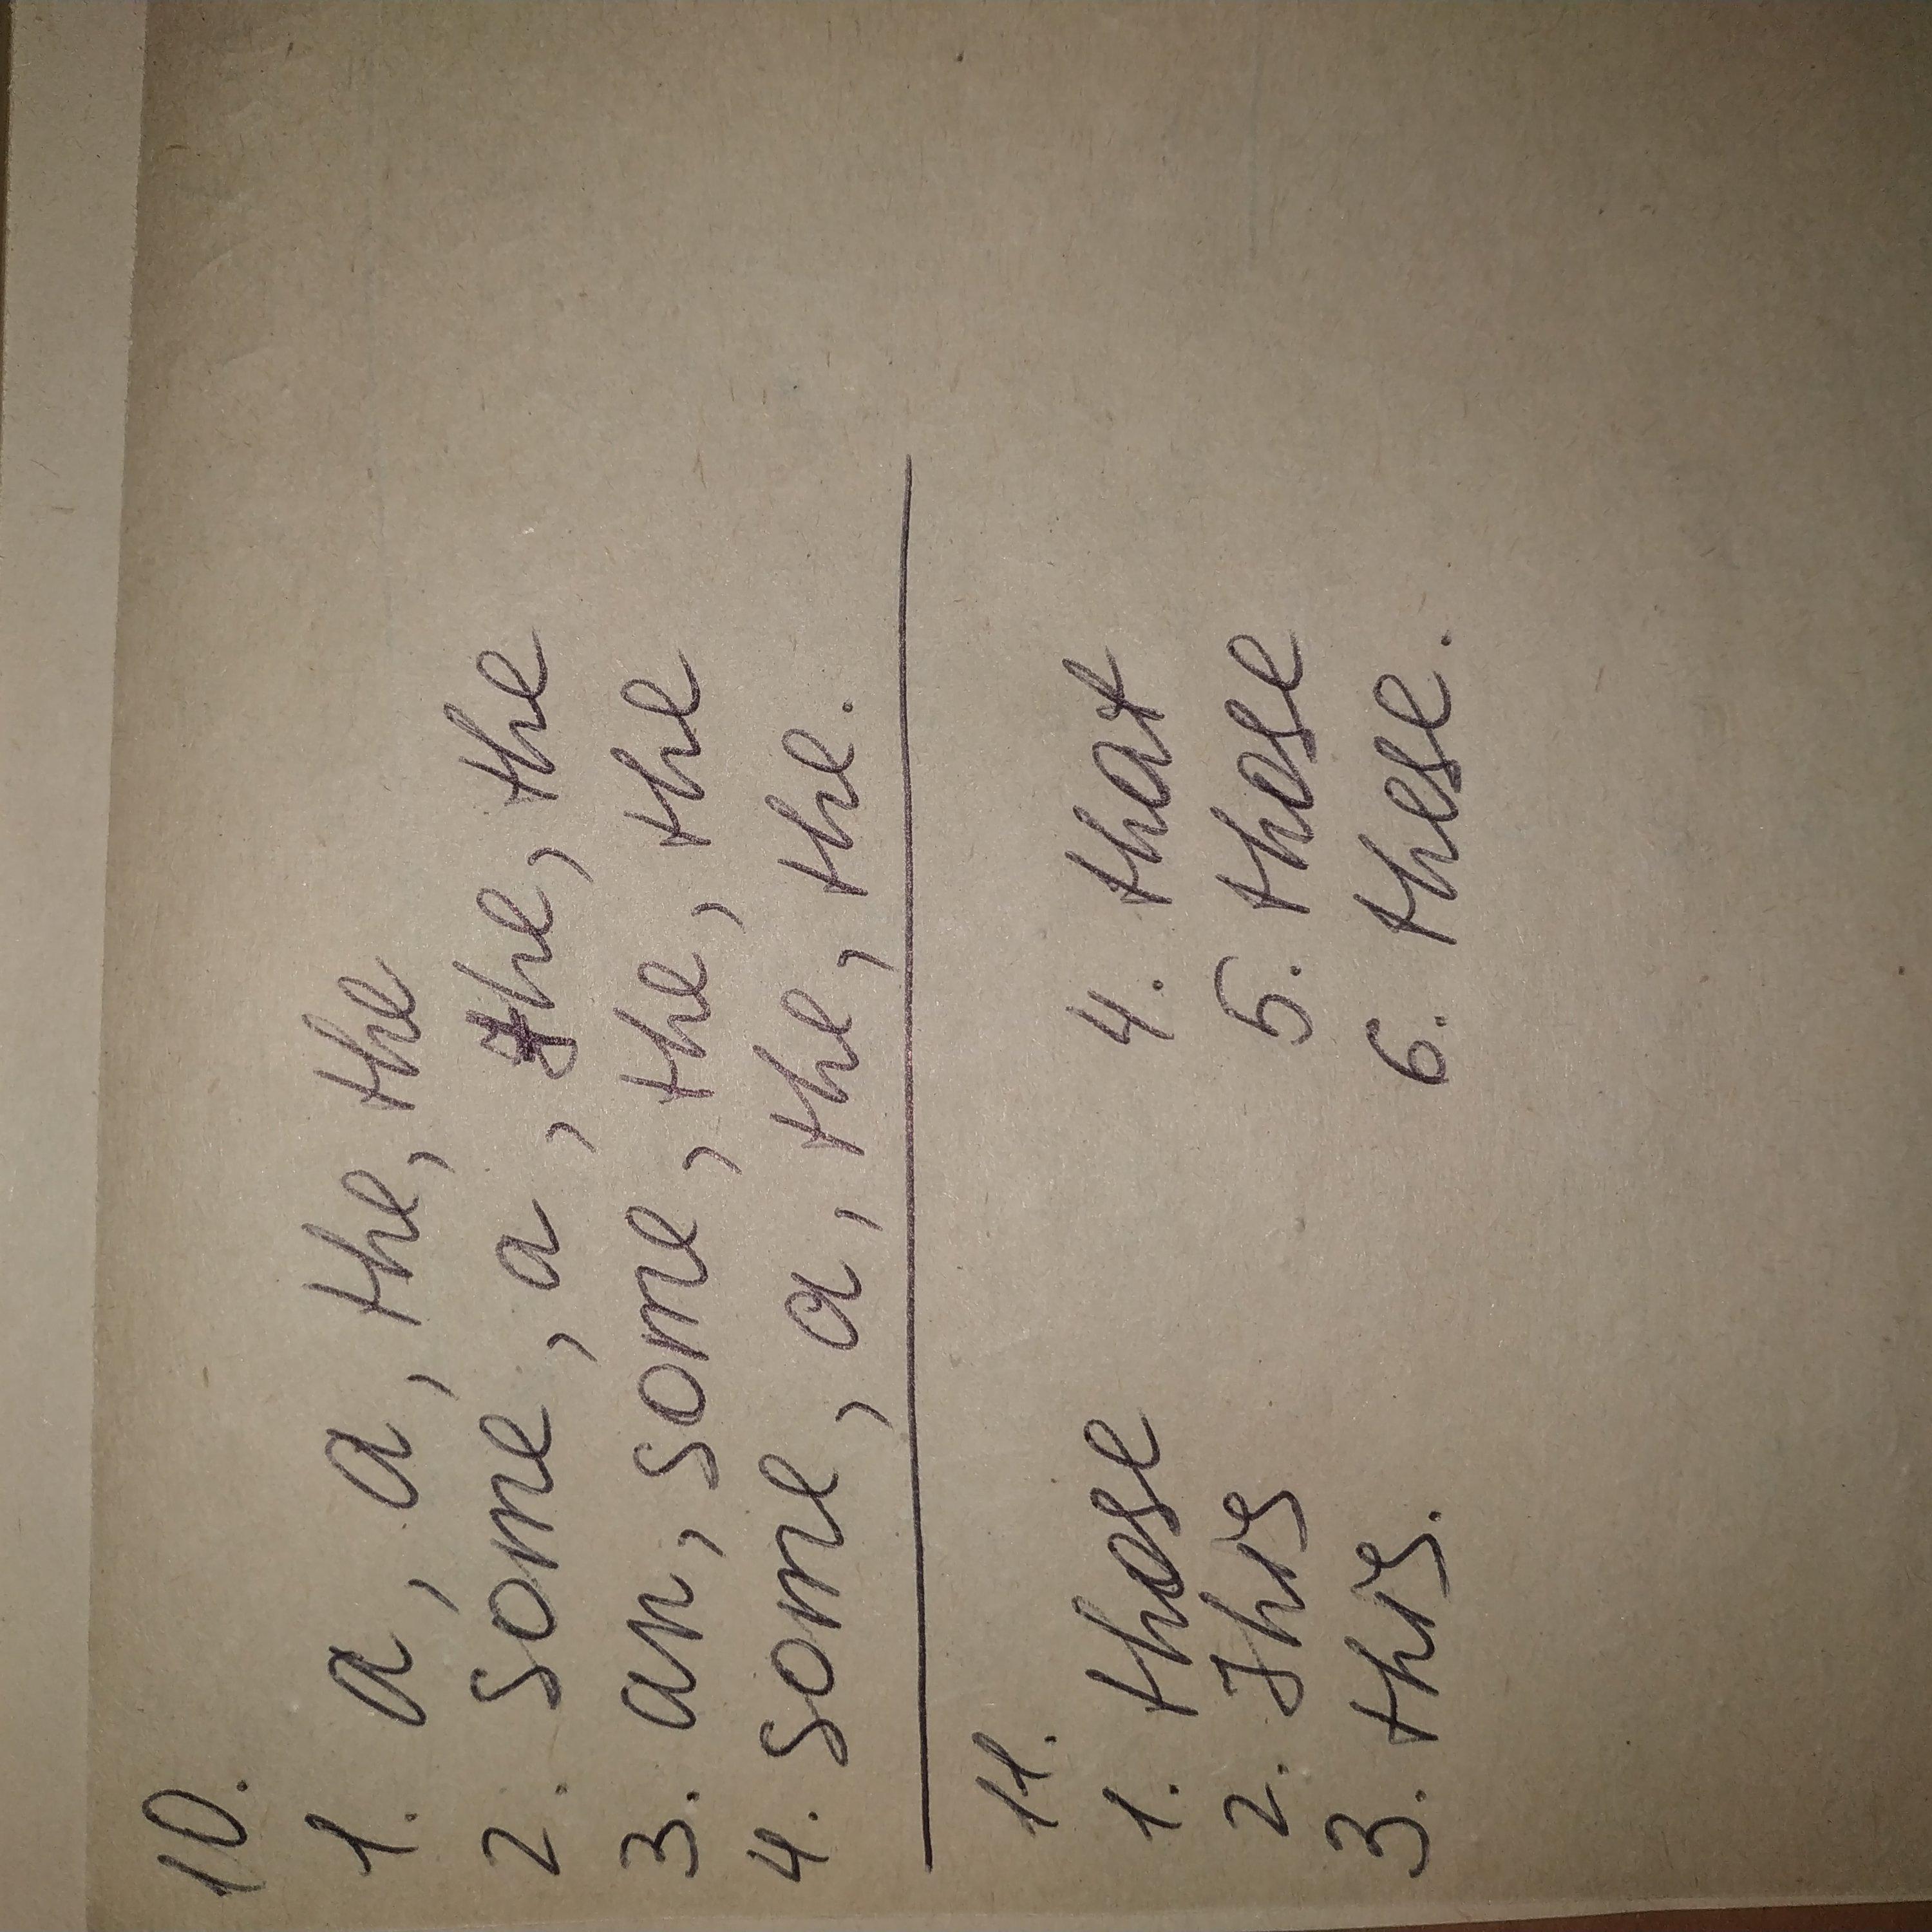 10.
1. a, a, the, the
2. some, a, the, the
3. an, some, the, the
4. some, a, the, the.
11.
1. those 4. that
2. This 5. those
3. this. 6. these.